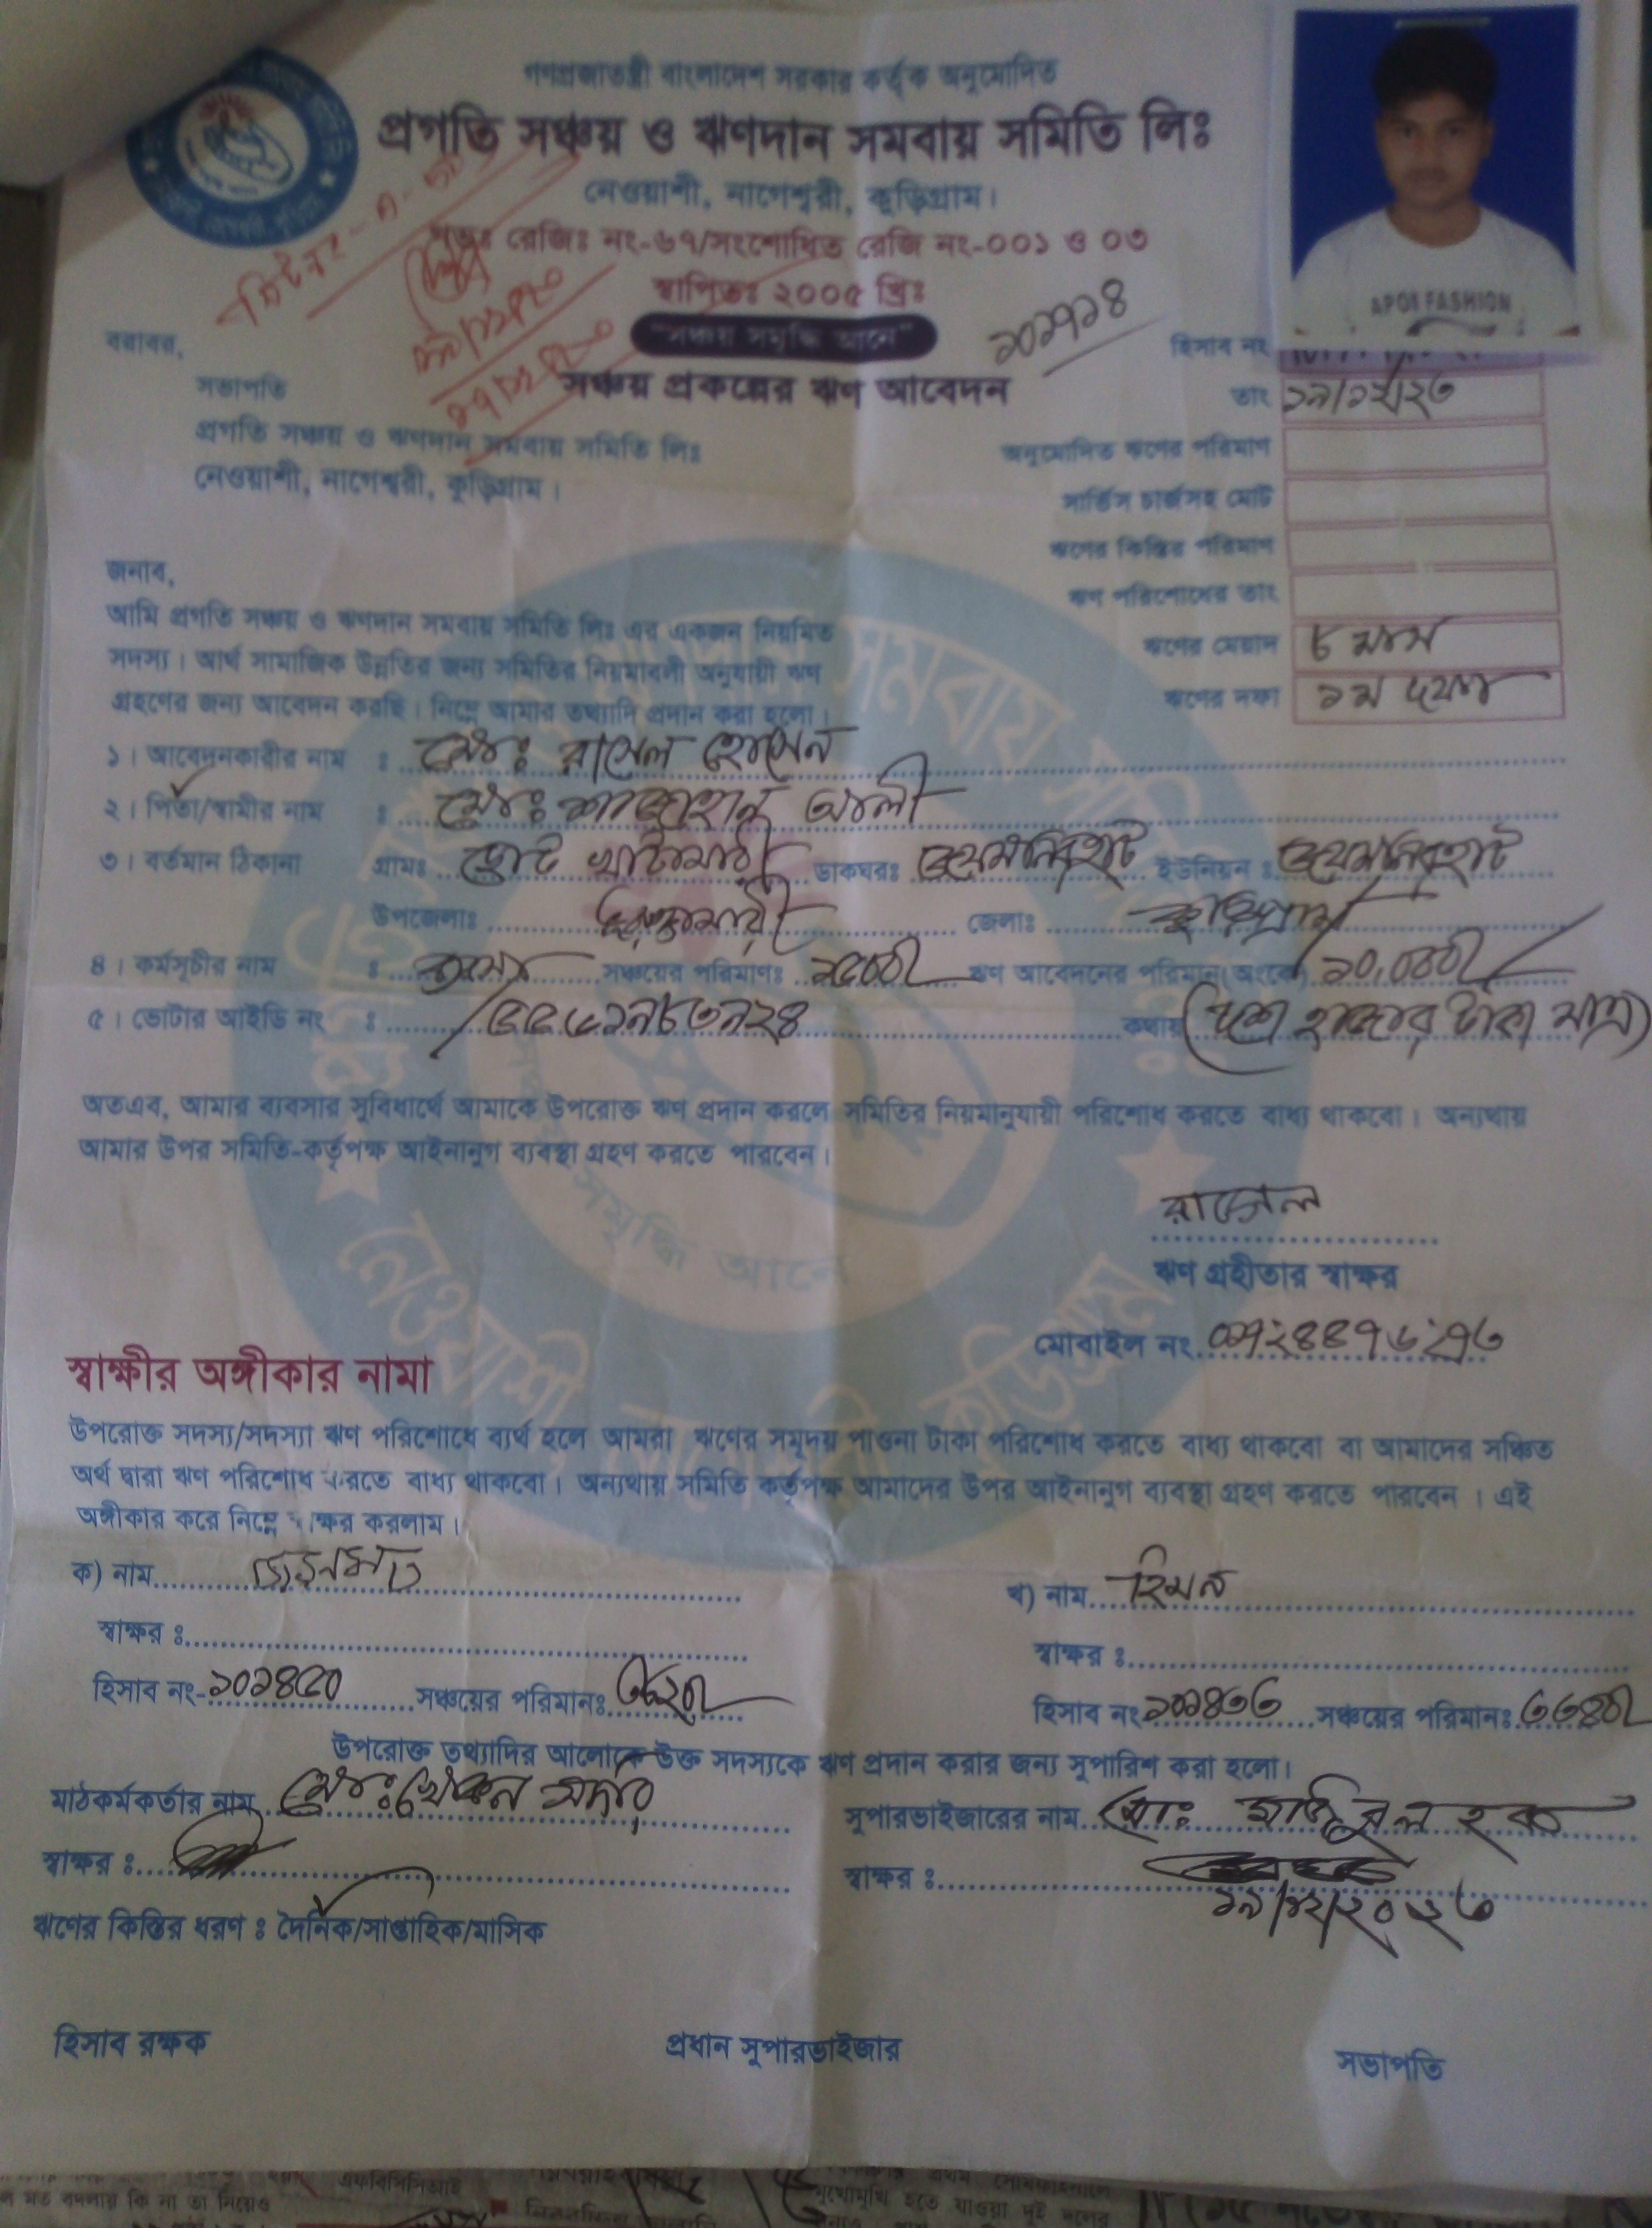 গণপ্রজাতন্ত্রী বাংলাদেশ সরকার কর্তৃক অনুমোদিত
প্রগতি সঞ্চয় ও ঋণদান সমবায় সমিতি লিঃ
নেওয়াশী, নাগেশ্বরী, কুড়িগ্রাম।
রেজিঃ নং-৬৭/সংশোধিত রেজি নং-০০১ ও ০৩
স্থাপিতঃ ২০০৫ খ্রিঃ
"সঞ্চয় সমৃদ্ধি আনে"
১০১৭১৪
APOS FASHION
সঞ্চয় প্রকল্পের ঋণ আবেদন
বরাবর,
সভাপতি
প্রগতি সঞ্চয় ও ঋণদান সমবায় সমিতি লিঃ
নেওয়াশী, নাগেশ্বরী, কুড়িগ্রাম।
হিসাব নং
তাং ১৯/১২/২৩
অনুমোদিত ঋণের পরিমাণ
সার্ভিস চার্জসহ মোট
ঋণের কিস্তির পরিমাণ
ঋণ পরিশোধের তাং
ঋণের মেয়াদ ৮ মাস
ঋণের দফা ১ম দফা
জনাব,
আমি প্রগতি সঞ্চয় ও ঋণদান সমবায় সমিতি লিঃ এর একজন নিয়মিত
সদস্য। আর্থ সামাজিক উন্নতির জন্য সমিতির নিয়মাবলী অনুযায়ী ঋণ
গ্রহণের জন্য আবেদন করছি। নিম্নে আমার তথ্যাদি প্রদান করা হলো।
১। আবেদনকারীর নাম : মোঃ রাসেল হোসেন
২। পিতা/স্বামীর নাম : মোঃ শাজাহান আলী
৩। বর্তমান ঠিকানা গ্রামঃ ছোট খাটামারী ডাকঘরঃ ইউনিয়ন :
উপজেলাঃ ভুরুঙ্গামারী জেলাঃ কুড়িগ্রাম
৪। কর্মসূচীর নাম : সঞ্চয়ের পরিমাণঃ ১৫০০/ ঋণ আবেদনের পরিমান(অংকে) ১০,০০০/
৫। ভোটার আইডি নং : কথায় (দশ হাজার টাকা মাত্র)
অতএব, আমার ব্যবসার সুবিধার্থে আমাকে উপরোক্ত ঋণ প্রদান করলে সমিতির নিয়মানুযায়ী পরিশোধ করতে বাধ্য থাকবো। অন্যথায়
আমার উপর সমিতি-কর্তৃপক্ষ আইনানুগ ব্যবস্থা গ্রহণ করতে পারবেন।
রাসেল
ঋণ গ্রহীতার স্বাক্ষর
মোবাইল নং
স্বাক্ষীর অঙ্গীকার নামা
উপরোক্ত সদস্য/সদস্যা ঋণ পরিশোধে ব্যর্থ হলে আমরা ঋণের সমূদয় পাওনা টাকা পরিশোধ করতে বাধ্য থাকবো বা আমাদের সঞ্চিত
অর্থ দ্বারা ঋণ পরিশোধ করতে বাধ্য থাকবো। অন্যথায় সমিতি কর্তৃপক্ষ আমাদের উপর আইনানুগ ব্যবস্থা গ্রহণ করতে পারবেন । এই
অঙ্গীকার করে নিম্নে স্বাক্ষর করলাম।
ক) নাম
খ) নাম হিমন
স্বাক্ষর :
স্বাক্ষর :
হিসাব নং-১০১৪৫০ সঞ্চয়ের পরিমানঃ
হিসাব নং ১০১৪৩৩ সঞ্চয়ের পরিমানঃ ৩৩৪০/
উপরোক্ত তথ্যাদির আলোকে উক্ত সদস্যকে ঋণ প্রদান করার জন্য সুপারিশ করা হলো।
মাঠকর্মকর্তার নাম মোঃ
সুপারভাইজারের নাম মোঃ হক
স্বাক্ষর :
স্বাক্ষর :
১৯/১২/২০২৩
ঋণের কিস্তির ধরণ : দৈনিক/সাপ্তাহিক/মাসিক
হিসাব রক্ষক
প্রধান সুপারভাইজার
সভাপতি